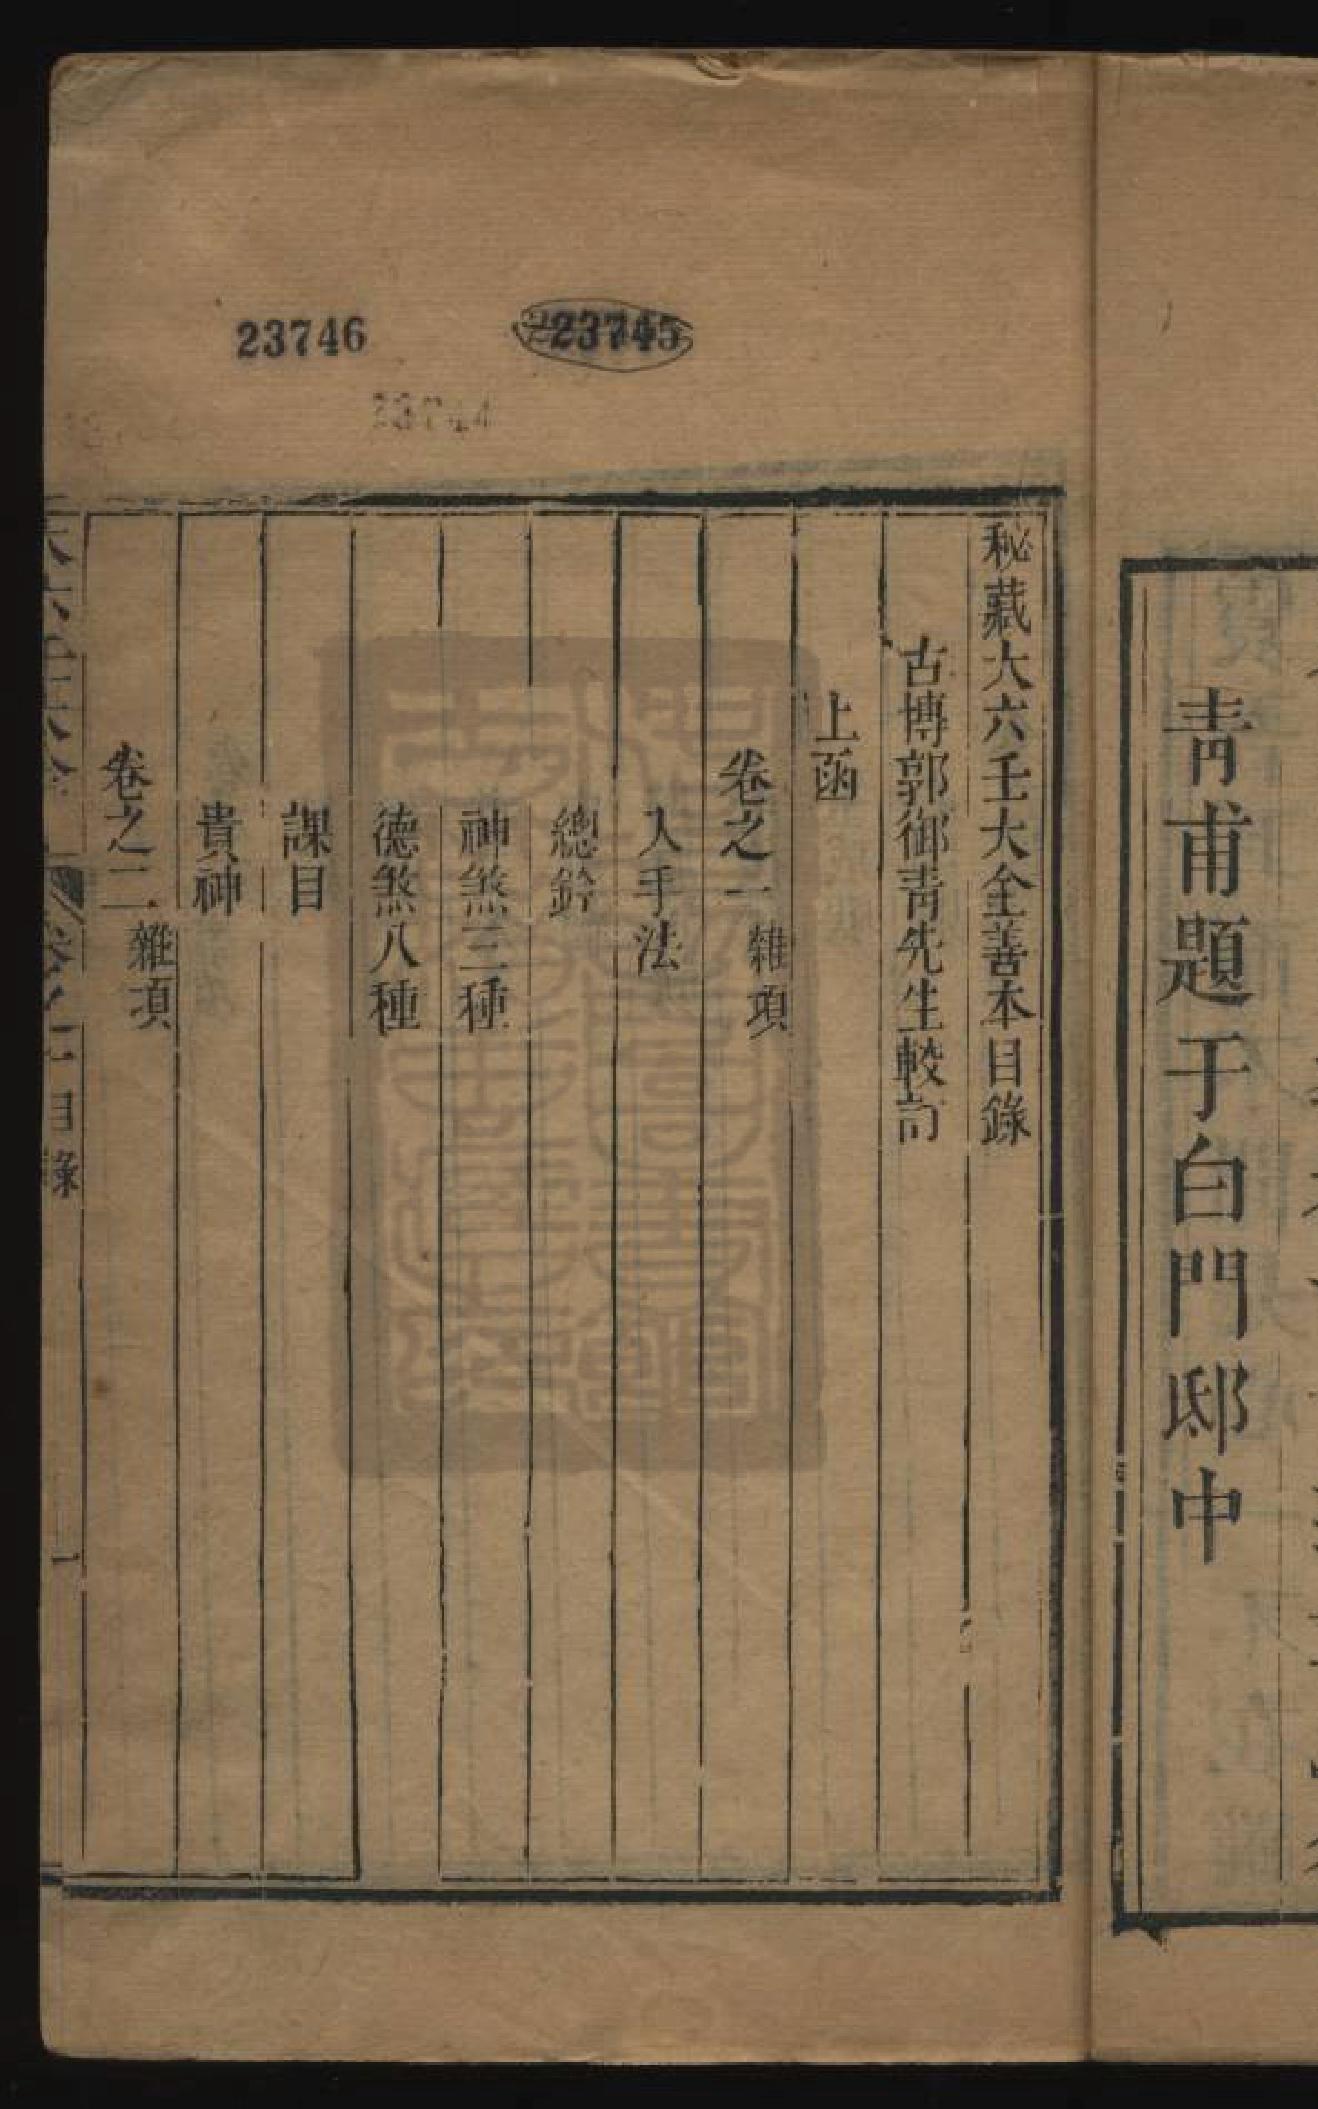 青甫題于白門邸中
23746
23745
23744
秘藏大六壬大全善本目錄
古博郭御青先生較訂
上函
卷之一 雜項
入手法
總鈐
神煞三種
德煞八種
課目
貴神
卷之二 雜項
目錄
一